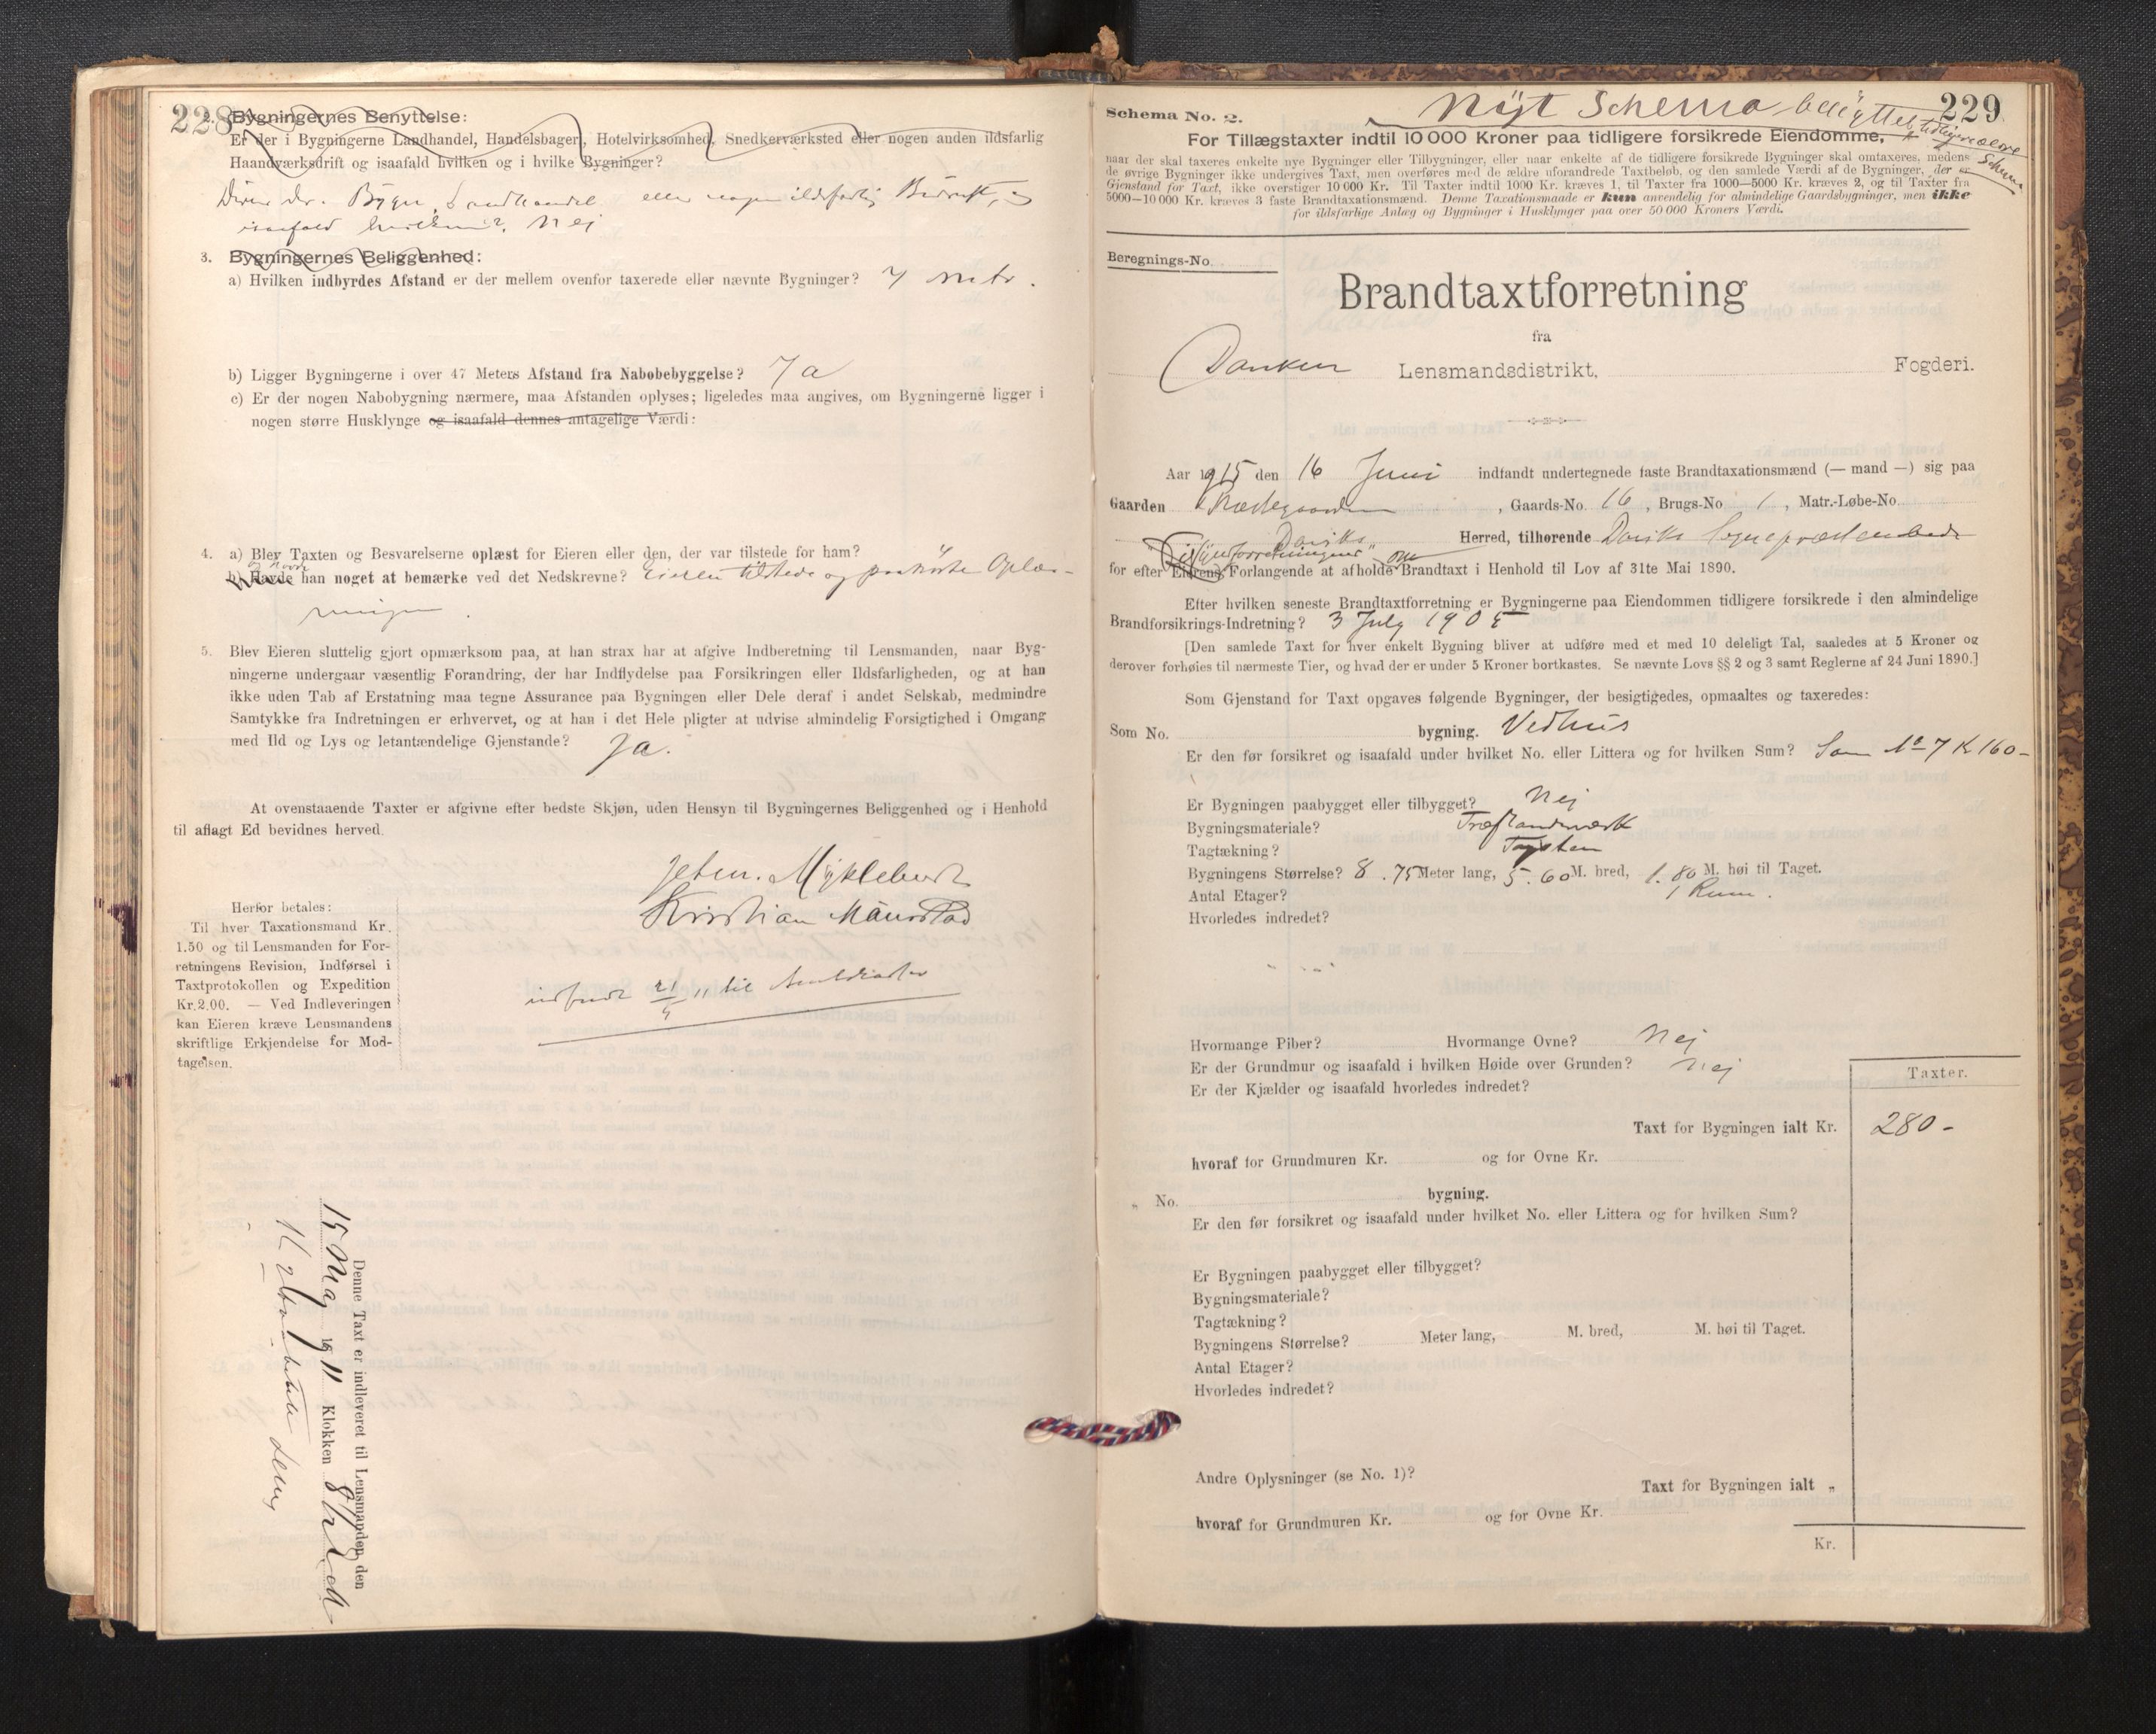 228
2. Bygningernes Benyttelse:
Er der i Bygningerne Landhandel, Handelsbageri, Hotelvirksomhed, Snedkerværksted eller nogen anden ildsfarlig
Haandværksdrift og isaafald hvilken og i hvilke Bygninger?
Bygn. Landhandel eller nogen ildsfarlig Bedrift,
isaafald Nej
3. Bygningernes Beliggenhed:
a) Hvilken indbyrdes Afstand er der mellem ovenfor taxerede eller nævnte Bygninger? 7 metr.
b) Ligger Bygningerne i over 47 Meters Afstand fra Nabobebyggelse? Ja
c) Er der nogen Nabobygning nærmere, maa Afstanden oplyses; ligeledes maa angives, om Bygningerne ligger i
nogen større Husklynge og isaafald dennes antagelige Værdi:
4. a) Blev Taxten og Besvarelserne oplæst for Eieren eller den, der var tilstede for ham?
b) Havde han noget at bemærke ved det Nedskrevne? Eieren tilstede og paahørte Oplæs-
ningen.
5. Blev Eieren sluttelig gjort opmærksom paa, at han strax har at afgive Indberetning til Lensmanden, naar Byg-
ningerne undergaar væsentlig Forandring, der har Indflydelse paa Forsikringen eller Ildsfarligheden, og at han
ikke uden Tab af Erstatning maa tegne Assurance paa Bygningen eller Dele deraf i andet Selskab, medmindre
Samtykke fra Indretningen er erhvervet, og at han i det Hele pligter at udvise almindelig Forsigtighed i Omgang
med Ild og Lys og letantændelige Gjenstande? Ja.
At ovenstaaende Taxter er afgivne efter bedste Skjøn, uden Hensyn til Bygningernes Beliggenhed og i Henhold
til aflagt Ed bevidnes herved.
Myklebust
Kristian Maurstad
Herfor betales:
Til hver Taxationsmand Kr.
1.50 og til Lensmanden for For-
retningens Revision, Indførsel i
Taxtprotokollen og Expedition
Kr. 2.00. — Ved Indleveringen
kan Eieren kræve Lensmandens
skriftlige Erkjendelse for Mod-
tagelsen.
til
Denne Taxt er indleveret til Lensmanden den
15 Maj 1911 Klokken 8
229
Nyt Schema benyttet tidligere
Schema
Schema No. 2.
For Tillægstaxter indtil 10 000 Kroner paa tidligere forsikrede Eiendomme,
naar der skal taxeres enkelte nye Bygninger eller Tilbygninger, eller naar enkelte af de tidligere forsikrede Bygninger skal omtaxeres, medens
de øvrige Bygninger ikke undergives Taxt, men overføres med de ældre uforandrede Taxtbeløb, og den samlede Værdi af de Bygninger, der er
Gjenstand for Taxt, ikke overstiger 10 000 Kr. Til Taxter indtil 1000 Kr. kræves 1, til Taxter fra 1000—5000 Kr. kræves 2, og til Taxter fra
5000—10 000 Kr. kræves 3 faste Brandtaxationsmænd. Denne Taxationsmaade er kun anvendelig for almindelige Gaardsbygninger, men ikke
for ildsfarlige Anlæg og Bygninger i Husklynger paa over 50 000 Kroners Værdi.
Beregnings-No.
Brandtaxtforretning
fra
Lensmandsdistrikt, Fogderi.
Aar 1915 den 16 Juni indfandt undertegnede faste Brandtaxationsmænd (— mand —) sig paa
Gaarden Prestegaarden, Gaards-No. 16, Brugs-No 1, Matr.-Løbe-No.
Daviks Herred, tilhørende Daviks Sogneprestembede
for efter Eierens Forlangende at afholde Brandtaxt i Henhold til Lov af 31te Mai 1890.
Efter hvilken seneste Brandtaxtforretning er Bygningerne paa Eiendommen tidligere forsikrede i den almindelige
Brandforsikrings-Indretning? 3 July 1905
[Den samlede Taxt for hver enkelt Bygning bliver at udføre med et med 10 deleligt Tal, saaledes at 5 Kroner og
derover forhøies til nærmeste Tier, og hvad der er under 5 Kroner bortkastes. Se nævnte Lovs §§ 2 og 3 samt Reglerne af 24 Juni 1890.]
Som Gjenstand for Taxt opgaves følgende Bygninger, der besigtigedes, opmaaltes og taxeredes:
Som No. bygning. Vedhus
Er den før forsikret og isaafald under hvilket No. eller Littera og for hvilken Sum? Som No 7 K 160-
Er Bygningen paabygget eller tilbygget? Nej
Bygningsmateriale?
Tagtækning? Tagsten
Bygningens Størrelse? 8.75 Meter lang, 5.60 M. bred, 1.80 M. høi til Taget.
Antal Etager? 1 Rum.
Hvorledes indredet?
Hvormange Piber? Hvormange Ovne? Nej
Er der Grundmur og isaafald i hvilken Høide over Grunden? Nej
Er der Kjælder og isaafald hvorledes indredet?
Taxter.
Taxt for Bygningen ialt Kr. 280-
hvoraf for Grundmuren Kr. og for Ovne Kr.
„ No. bygning.
Er den før forsikret og isaafald under hvilket No. eller Littera og for hvilken Sum?
Er Bygningen paabygget eller tilbygget?
Bygningsmateriale?
Tagtækning?
Bygningens Størrelse? Meter lang, M. bred, M. høi til Taget.
Antal Etager?
Hvorledes indredet?
Andre Oplysninger (se No. 1)?
Taxt for Bygningen ialt „
hvoraf for Grundmuren Kr. og for Ovne Kr.
Kr.